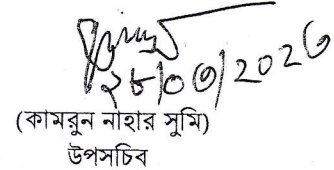 ২৮/০৩/২০২৩
(কামরুন নাহার সুমি)
উপসচিব